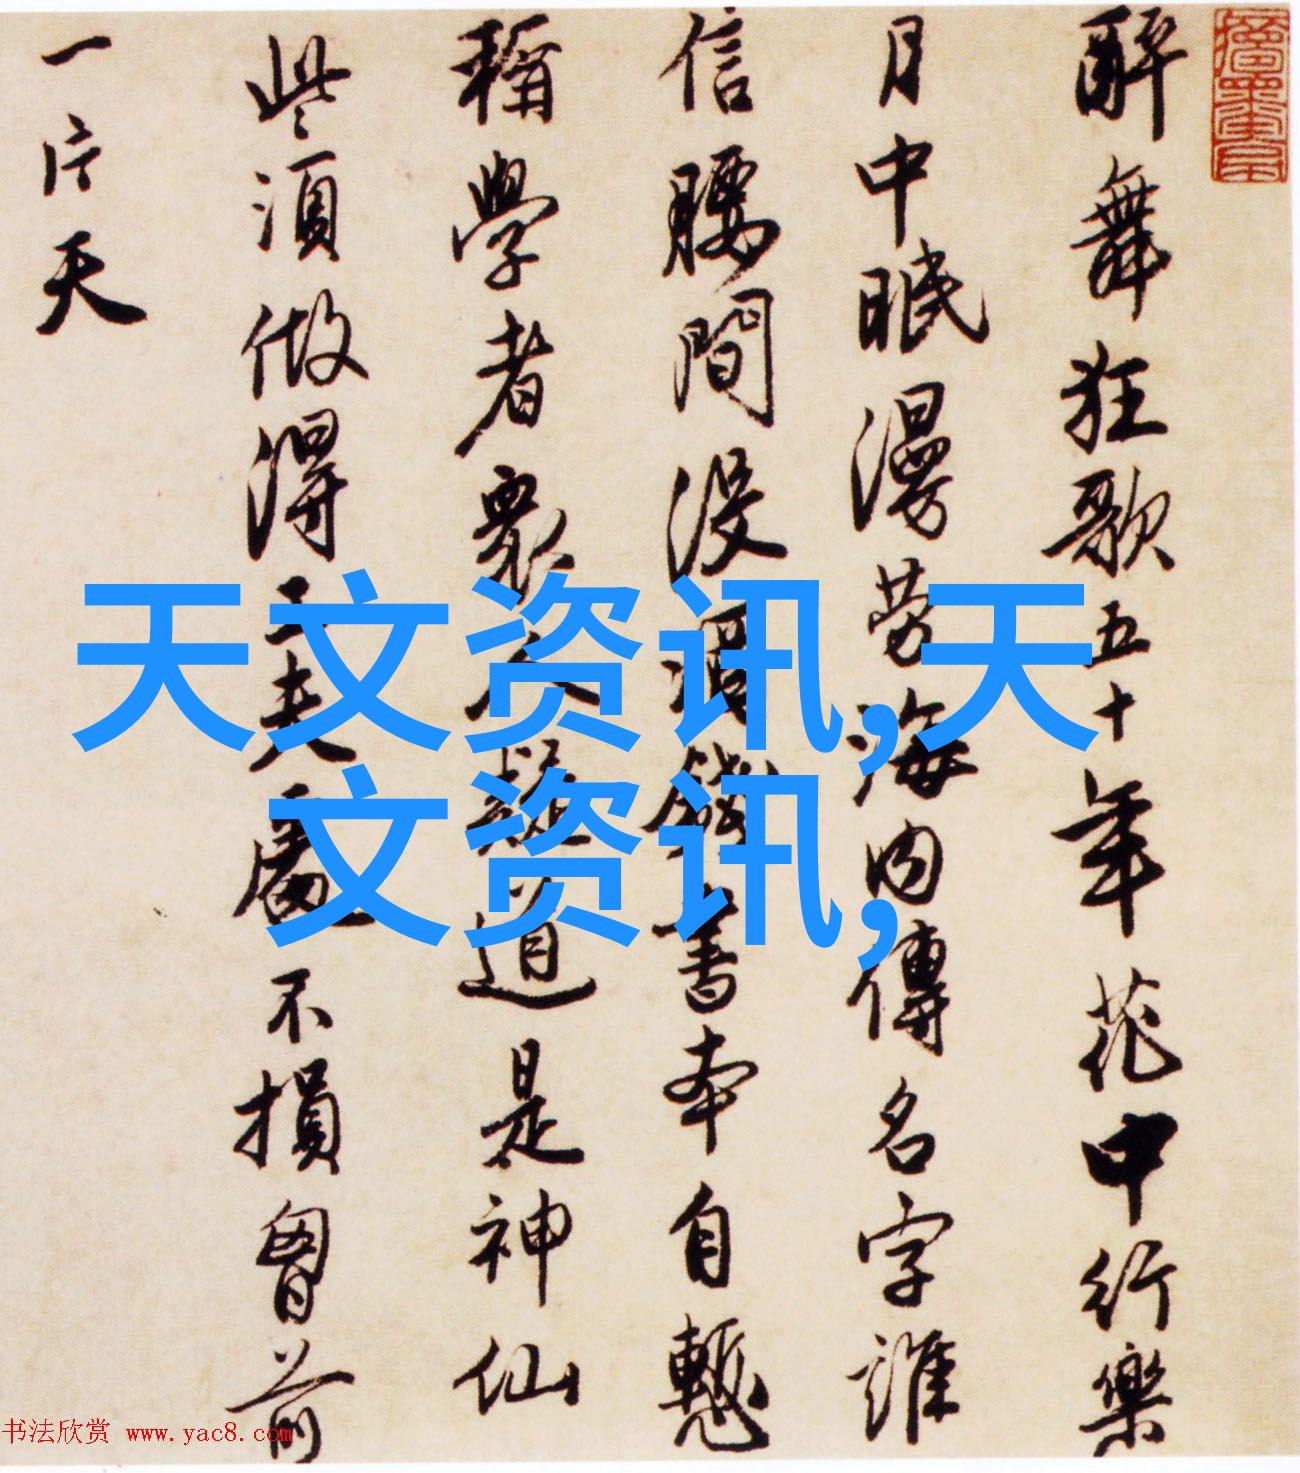 醉舞狂歌五十年花中行樂
月中眠漫勞海内傳名字誰
信腰間没酒錢書本自慙
稱學者衆人疑道是神仙
些須做得工夫處不損胷前
一片天
天文资讯,天
文资讯,
书法欣赏 www.yac8.com